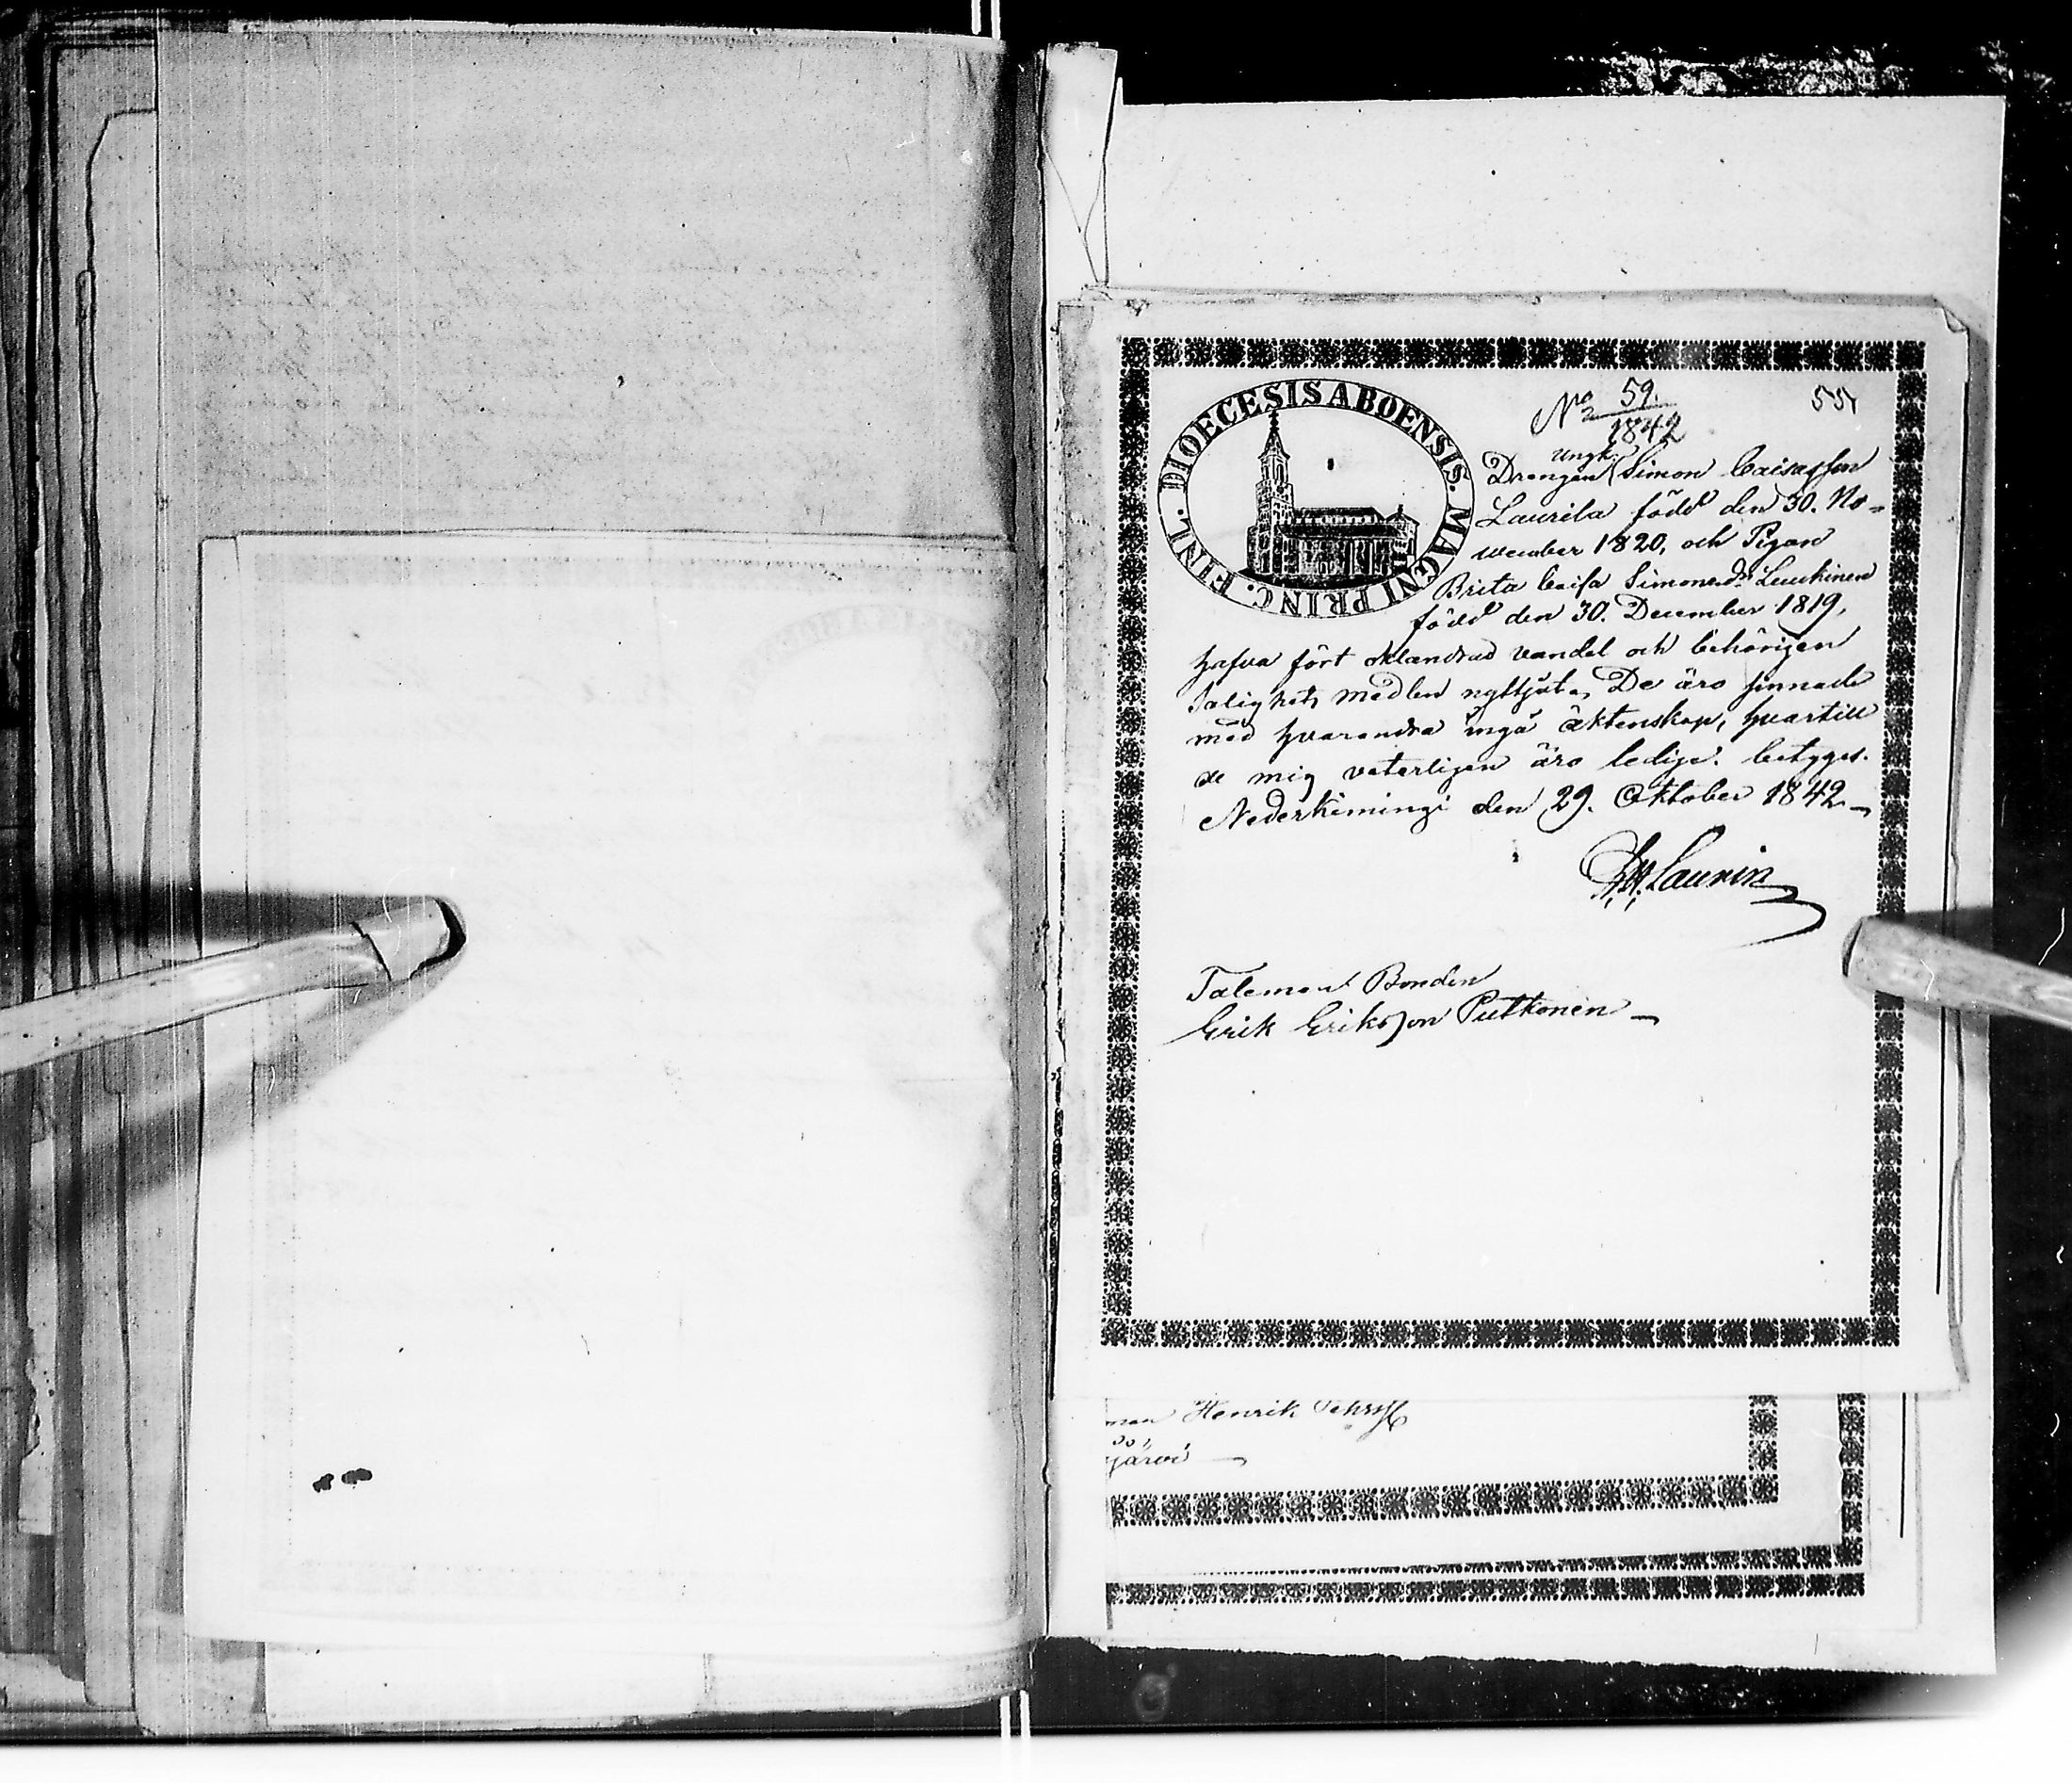 DIOECESIS ABOENSIS. MAGNI PRINC. FINL.
No 59.
1842
551
Ungk.
Drengen Simon Caisasson
Laurila född den 30. No=
vember 1820, och Pigan
Brita Caisa Simonsdr Leuchinen
född den 30. December 1819,
hafva fört oklandrad vandel och behörigen
salighets medlen nyttjat. De äro sinnade
med hvarandra ingå äktenskap, hvartill
de mig veterligen äro ledige. betyges.
Nederkimingi den 29. Oktober 1842.—
Laurin
Taleman Bonden
Erik Eriksson Putkonen —
man Henrik
järvi —